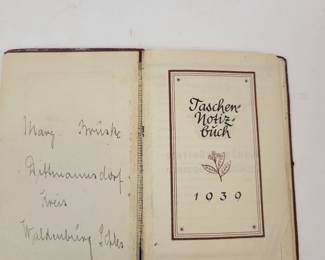 Marg. Brüske
Dittmannsdorf
Kreis
Waldenburg Schles
Taschen
Notiz-
büch
1939